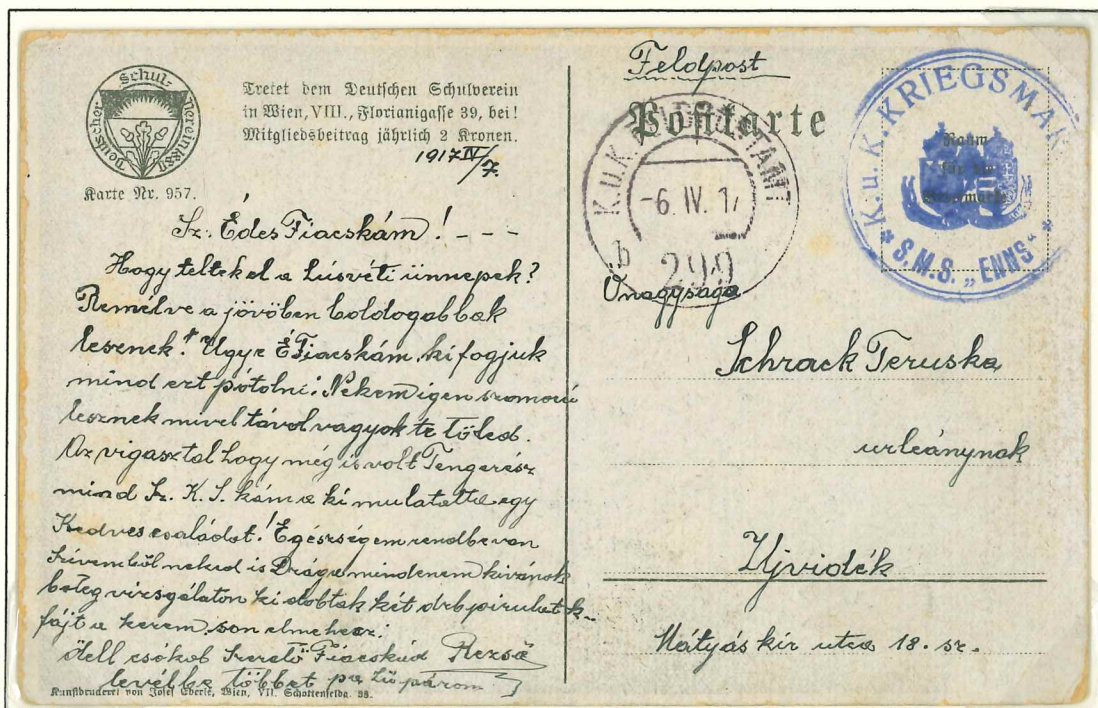 Deutscher Schul-Verein
Tretet dem Deutschen Schulverein
in Wien, VIII., Florianigasse 39, bei!
Mitgliedsbeitrag jährlich 2 Kronen.
Karte Nr. 957.
1917 IV/7
Sz. Édes Fiacskám! - - -
Hogy teltek el a húsvéti ünnepek?
Remélve a jövöben boldogabbak
lesznek! Ugye É Fiacskám ki fogjuk
mind ezt pótolni! Nekem igen szomorú
lesznek mivel távol vagyok te töled.
Az vigasztal hogy még is volt Tengerész
mind Sz. K. S. kám a ki mulatatta egy
Kedves családot! Egésségem rendbe van
Szivemböl neked is Drága mindenem kivánok
beteg vizsgálaton ki dobtak két drb
fájt a kezem
csókol Szeretö Fiacskád Rezsö
levélbe többet pá párom
Kunstdruckerei von Josef Eberle, Wien, VII. Schottenfeldg. 38.
Feldpost
Postkarte
K.u.K. FELDPOSTAMT
-6. IV. 17
b
299
K. u. K. KRIEGSMAR
* S.M.S. „ENNS" *
Raum
für die
Briefmarke
Önagysága
Schrack Teruska
urleánynak
Ujvidék
Mátyás kir utca 18. sz.